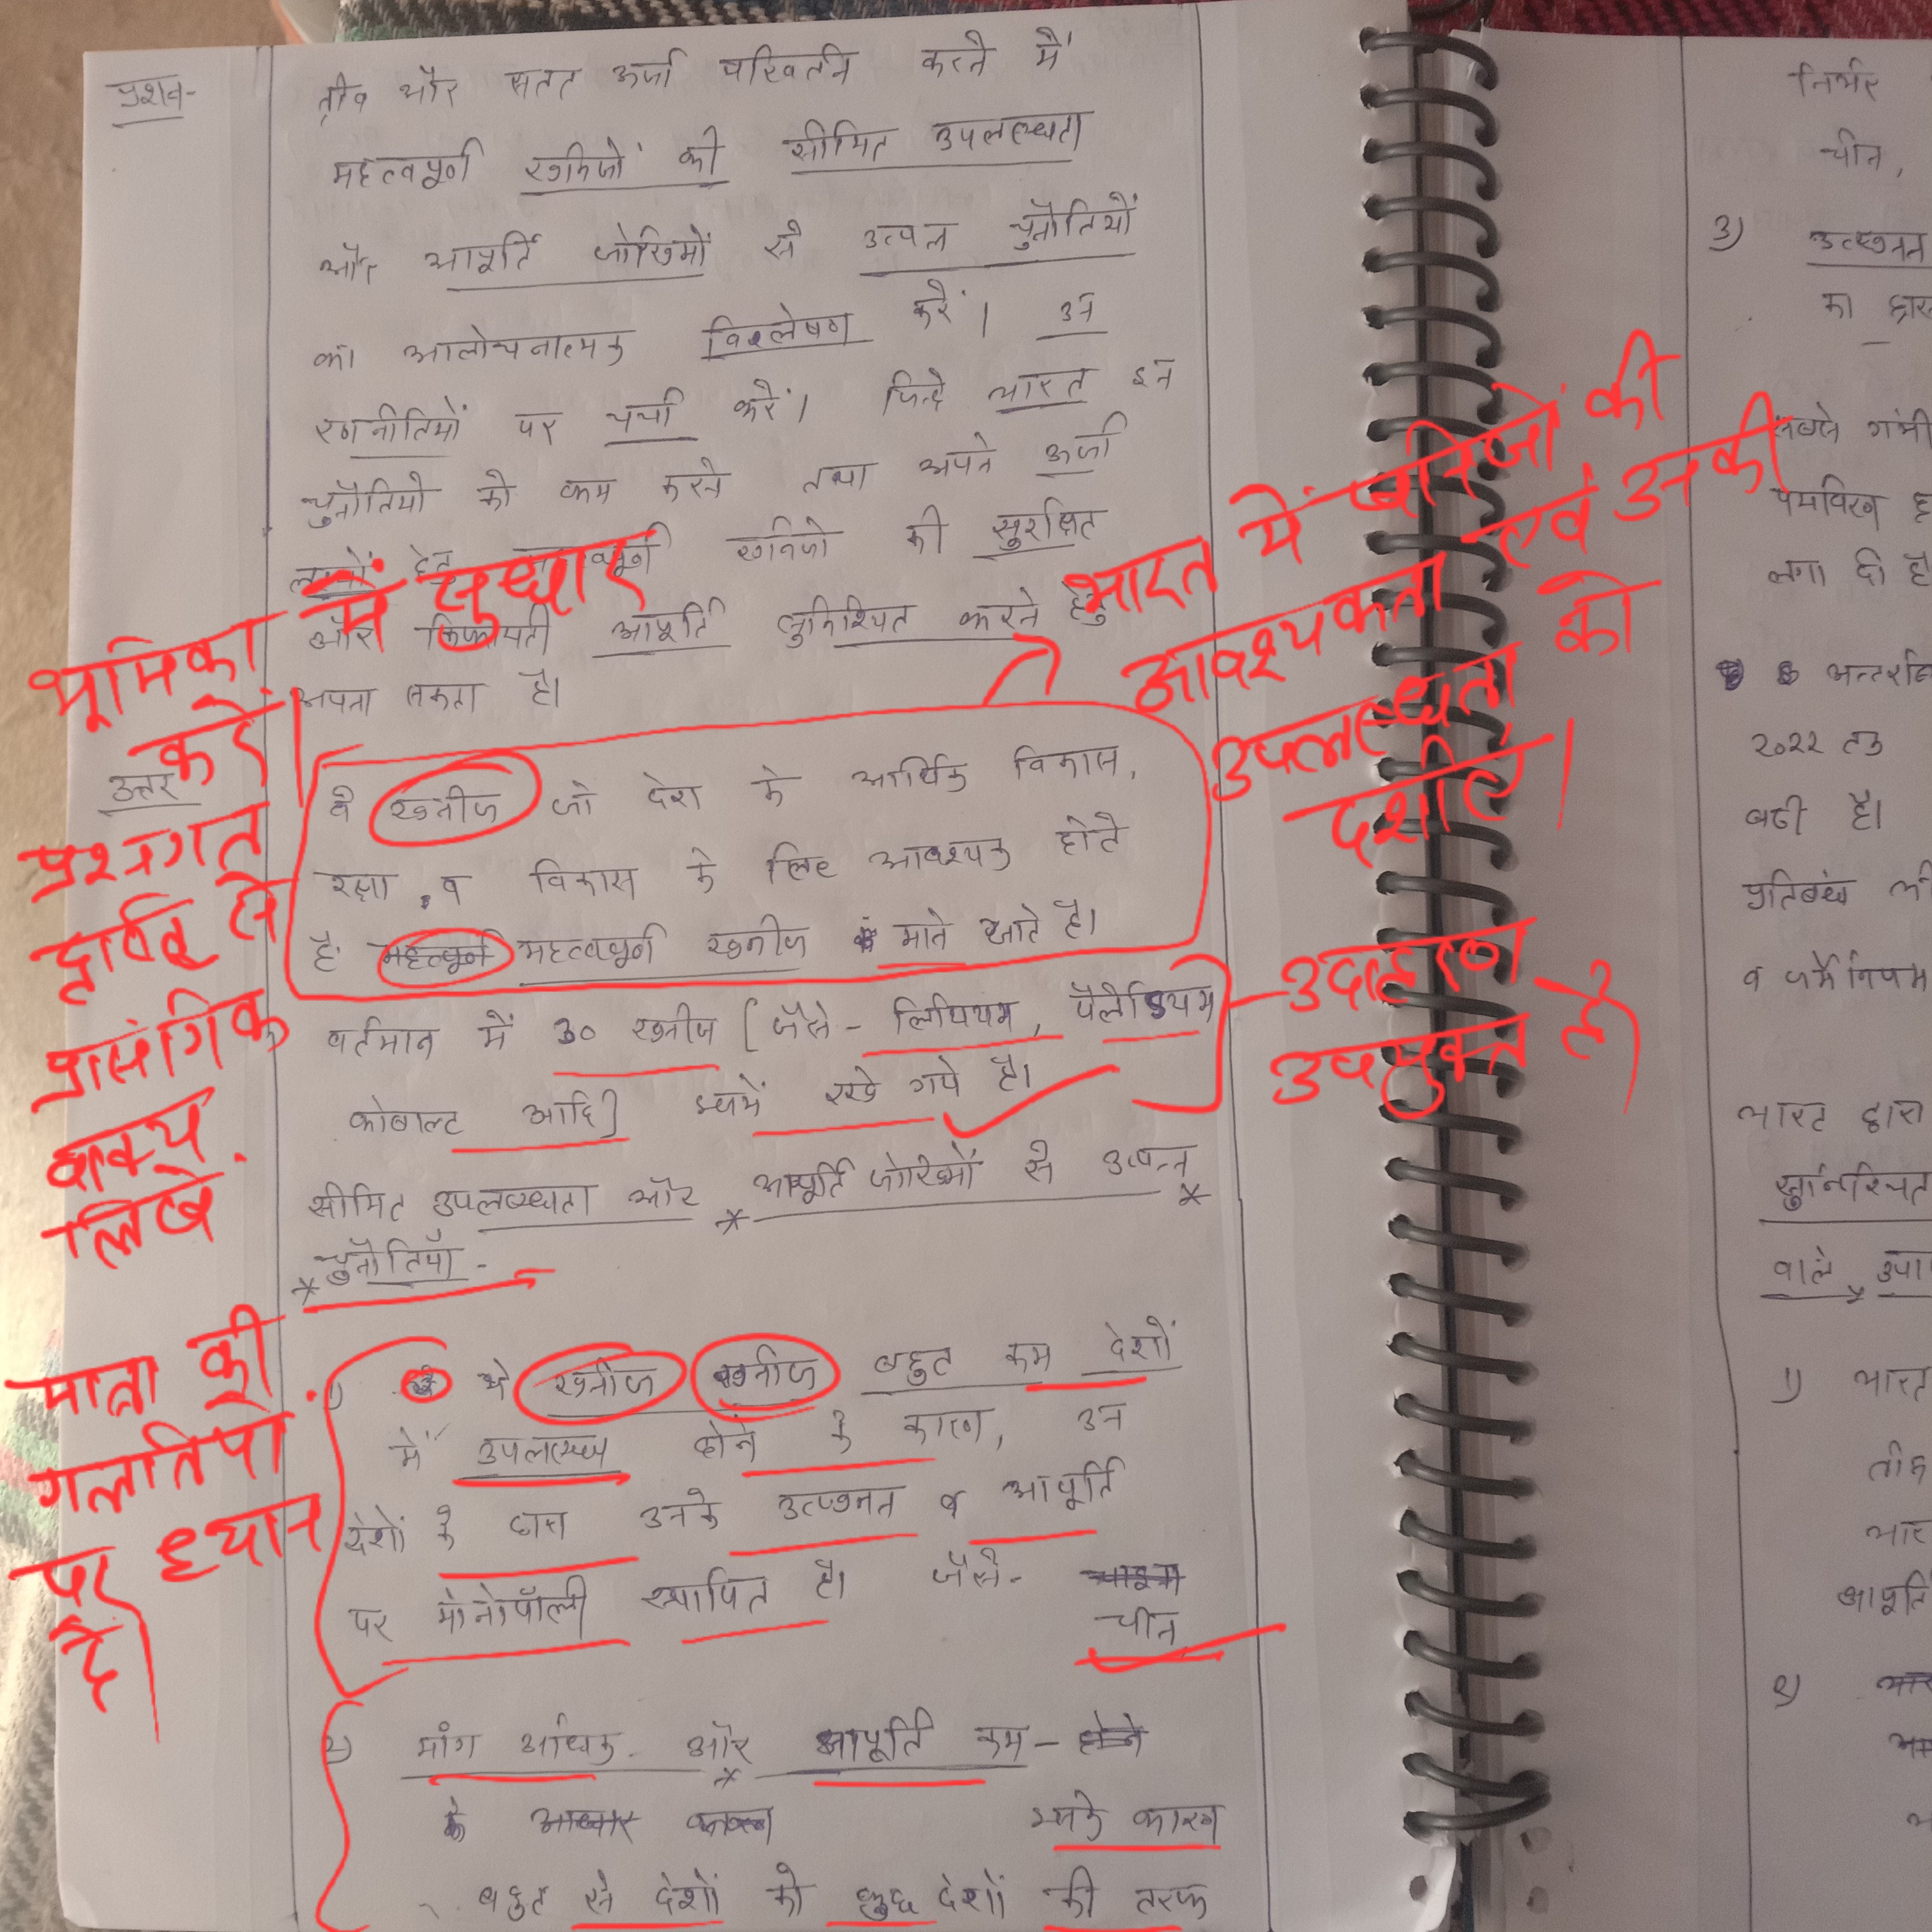 प्रश्न-
तीव्र और सतत ऊर्जा परिवर्तन करने में
महत्वपूर्ण खनिजों की सीमित उपलब्धता
और आपूर्ति जोखिमों से उत्पन्न चुनौतियों
का आलोचनात्मक विश्लेषण करें। उन
रणनीतियों पर चर्चा करें। जिन्हे भारत इन
चुनौतियों को कम करने तथा अपने ऊर्जा
लक्ष्यों हेतु खनिजो की सुरक्षित
और किफायती आपूर्ति सुनिश्चित करने हेतु
अपना सकता है।
भूमिका में सुधार
करें।
प्रश्नगत
प्रासंगिक
वाक्य
लिखें
भारत में खनिजों की
आवश्यकता एवं उनकी
उपलब्धता को
दर्शाएं।
उत्तर
वे खनीज जो देश के आर्थिक विकास,
रक्षा व विकास के लिए आवश्यक होते
है महत्वपूर्ण खनीज माने जाते है।
वर्तमान में 30 खनीज [जैसे - लिथियम, पैलेडियम
कोबाल्ट आदि] इसमें रखे गये है।
उदाहरण
उपयुक्त है
सीमित उपलब्धता और आपूर्ति जोखिमों से उत्पन्न
चुनौतियाँ -
मात्रा की
गलतियों
पर ध्यान
दें।
1) ये खनीज खनीज बहुत कम देशों
में उपलब्ध होने के कारण, उन
देशों के द्वारा उनके उत्खनन व आपूर्ति
पर मोनोपॉली स्थापित है। जैसे-
चीन
2) मांग अधिक और आपूर्ति कम -
इसके कारण
बहुत से देशों को कुछ देशों की तरफ
निर्भर
चीन,
3) उत्खनन
का
पर्यावरण
लगा दी है
2022 तक
बढी है।
प्रतिबंध
व जर्मेनियम
भारत द्वारा
सुनिश्चित
वाले उपा
1) भारत
आपूर्ति
2)